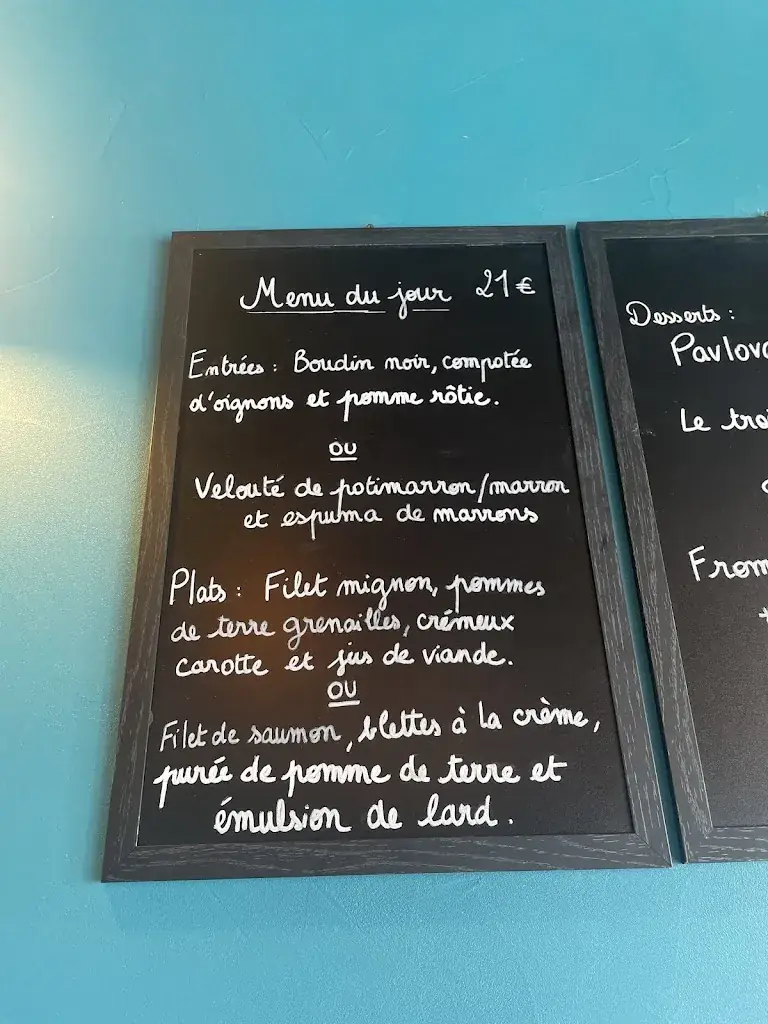 Menu du jour 21€
Entrées : Boudin noir, compotée
d'oignons et pomme rôtie.
ou
Velouté de potimarron/marron
et espuma de marrons
Plats : Filet mignon, pommes
de terre grenailles, crémeux
carotte et jus de viande.
ou
Filet de saumon, blettes à la crème,
purée de pomme de terre et
émulsion de lard.
Desserts :
Pavlov
Le